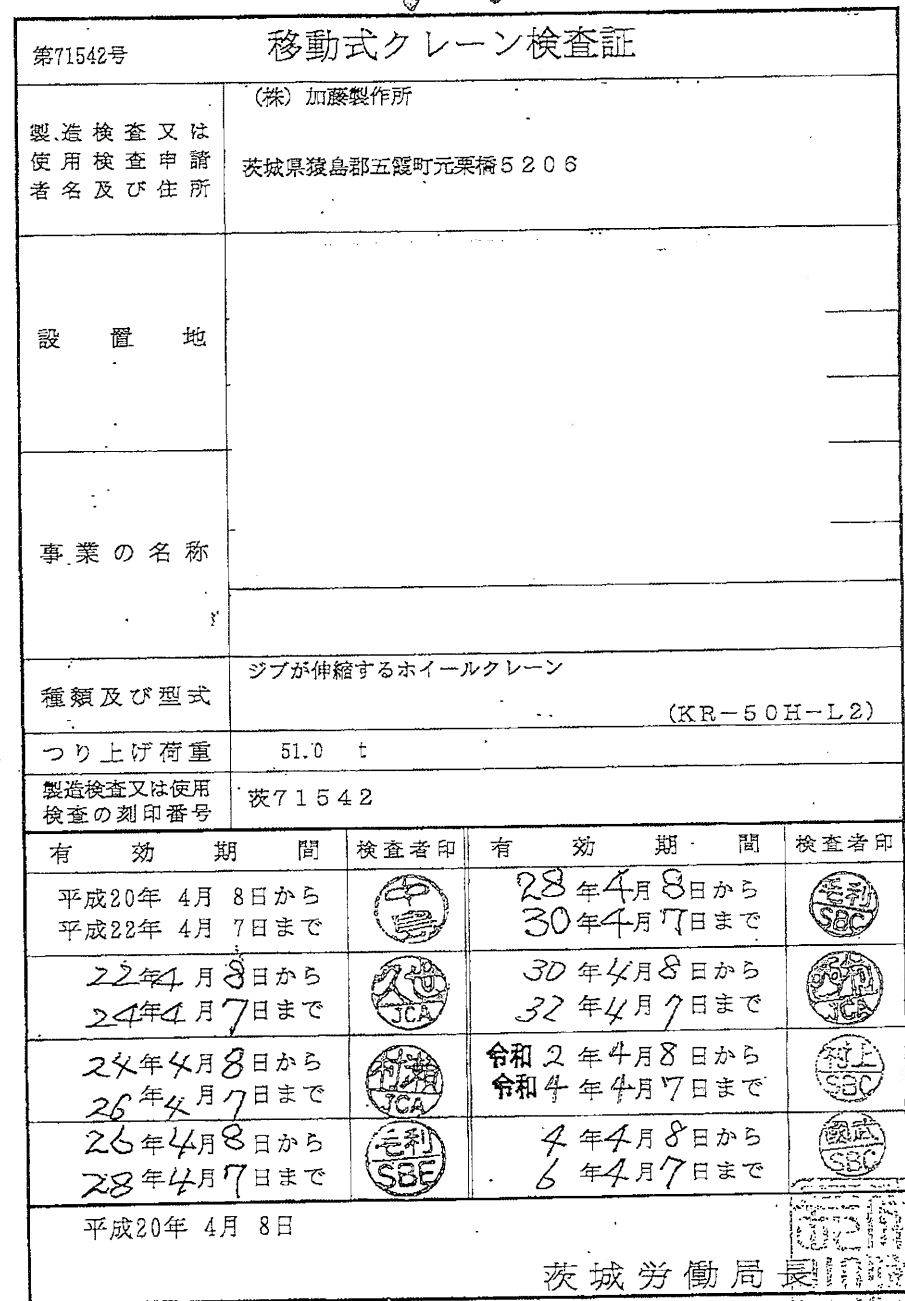 第71542号
移動式クレーン検査証
製造検査又は
使用検査申請
者名及び住所
(株) 加藤製作所
茨城県猿島郡五霞町元栗橋5206
設置地
事業の名称
種類及び型式
ジブが伸縮するホイールクレーン
(KR-50H-L2)
つり上げ荷重
51.0 t
製造検査又は使用
検査の刻印番号
茨71542
有効期間 検査者印 有効期間 検査者印
平成20年 4月 8日から
平成22年 4月 7日まで
中島
28年4月8日から
30年4月7日まで
毛利
SBC
22年4月8日から
24年4月7日まで
久世
JCA
30年4月8日から
32年4月7日まで
JCA
24年4月8日から
26年4月7日まで
村瀬
JCA
令和2年4月8日から
令和4年4月7日まで
村上
SBC
26年4月8日から
28年4月7日まで
毛利
SBE
4年4月8日から
6年4月7日まで
國武
SBC
平成20年 4月 8日
茨城労働局長